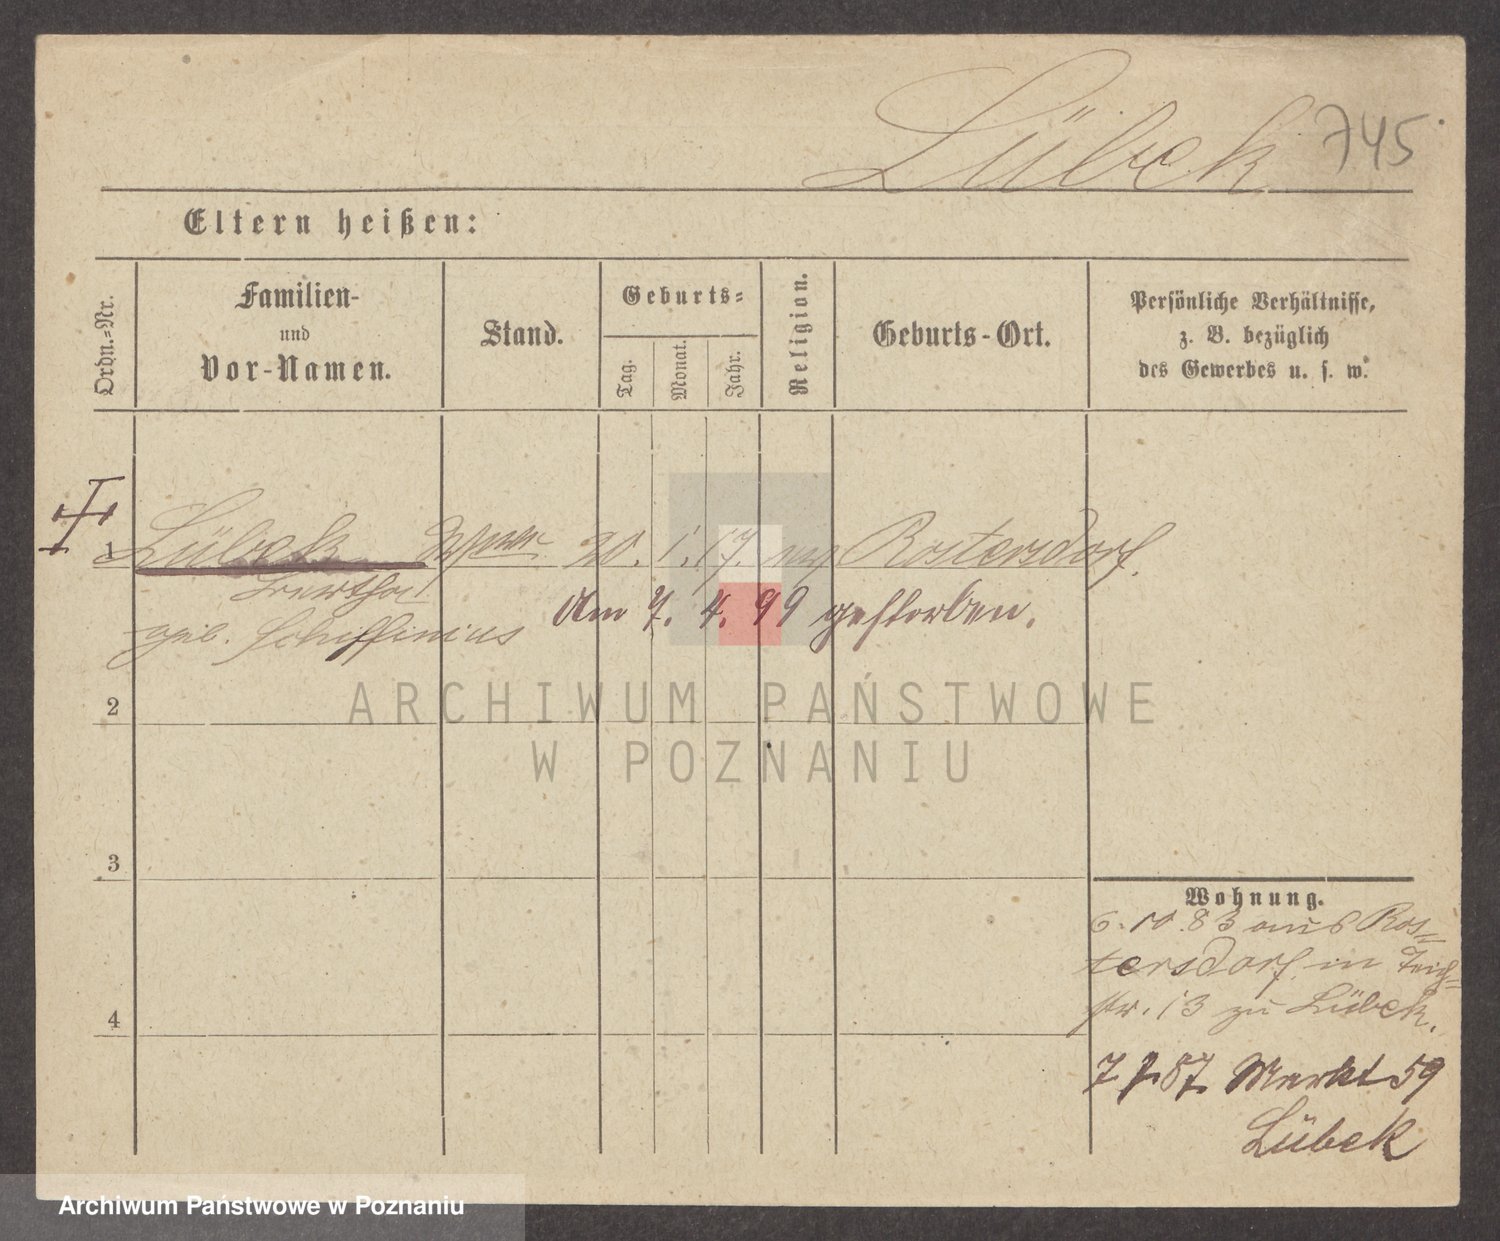 Lübek 745
Eltern heißen:
Ordn.-Nr.
Familien-
und
Vor-Namen.
Stand.
Geburts-
Tag.
Monat.
Jahr.
Religion.
Geburts-Ort.
Persönliche Verhältnisse,
z. B. bezüglich
des Gewerbes u. s. w.
1 Lübek 20. 1. 17. Rostersdorf.
geb. Schiffinius
Am 7. 4. 99 gestorben.
2
3
4
Wohnung.
6.10.83 aus Ros-
tersdorf in Teich-
str. 13 zu Lübek.
7 87 Markt 59
Lübek
ARCHIWUM PAŃSTWOWE
W POZNANIU
Archiwum Państwowe w Poznaniu